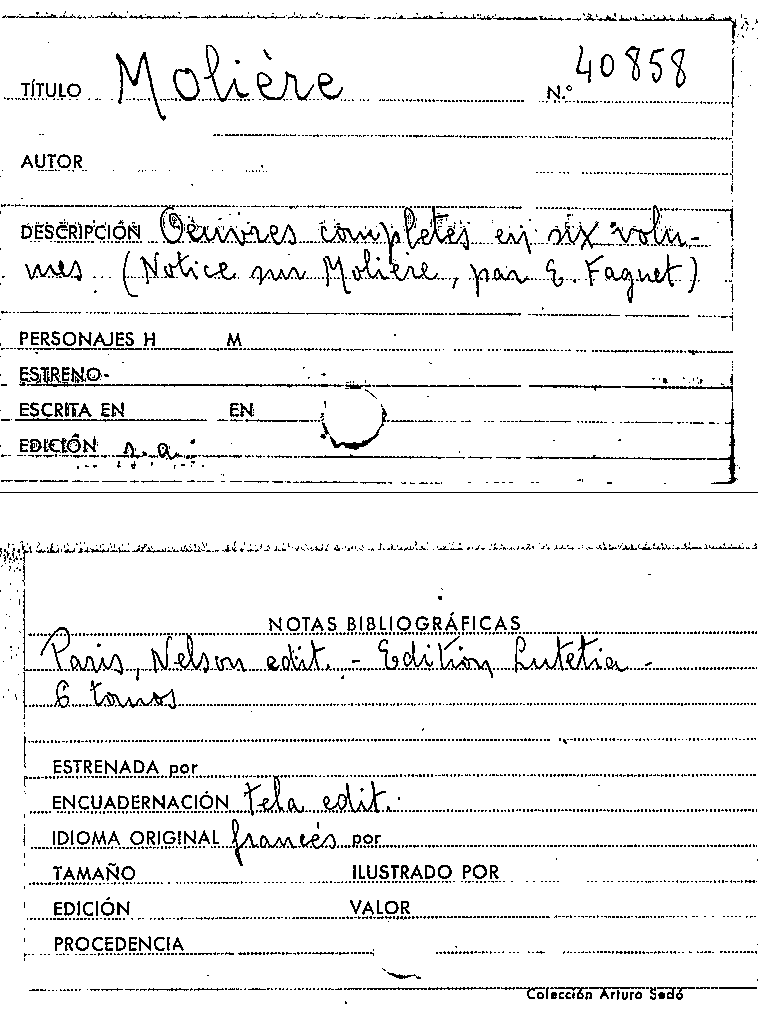 TÍTULO Molière N.º 40858
AUTOR
DESCRIPCIÓN Oeuvres completes en six volu-
mes (Notice sur Molière, par E. Faguet)
PERSONAJES H M
ESTRENO
ESCRITA EN EN
EDICIÓN s. a.
NOTAS BIBLIOGRÁFICAS
Paris, Nelson edit. - Edition Lutetia -
6 tomos
ESTRENADA por
ENCUADERNACIÓN tela edit.
IDIOMA ORIGINAL francés por
TAMAÑO ILUSTRADO POR
EDICIÓN VALOR
PROCEDENCIA
Colección Arturo Sedó